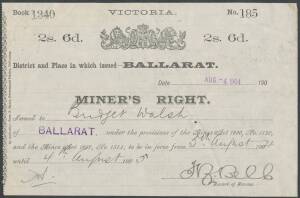 Book 1340 VICTORIA. No. 185
2s. 6d. 2s. 6d.
District and Place in which issued BALLARAT.
Date AUG -4 1904 190
MINER'S RIGHT.
Issued to Bridget Walsh
of BALLARAT. under the provisions of the Mines Act 1890, No. 1120,
and the Mines Act 1897, No. 1514, to be in force from 5th August 1904
until 4th August 1905